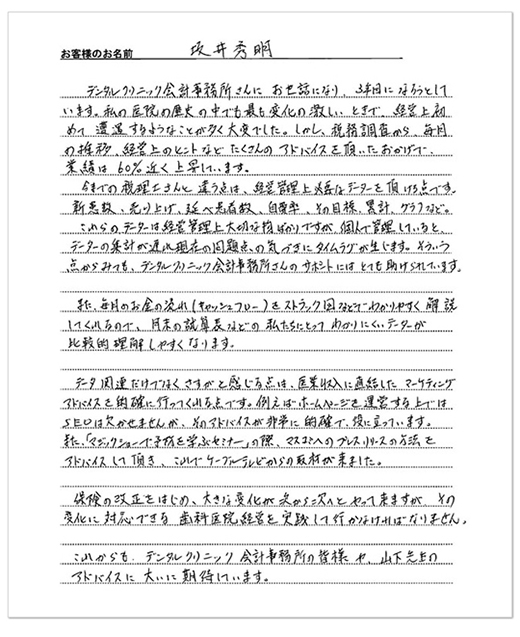 お客様のお名前 坂井秀明
デンタルクリニック会計事務所さんに お世話になり 3年目になろうとして
います。私の医院の歴史の中でも最も変化の激しいときで、経営上初
めて遭遇するようなことが多く大変でした。しかし、税務調査から、毎月
の推移、経営上のヒントなど たくさんの アドバイスを頂いたおかげで、
業績は 60%近く上昇しています。
今までの税理士さんと違う点は、経営管理上必要なデーターを頂ける点です。
新患数、売り上げ、延べ患者数、自費率、その目標、累計、グラフなど。
これらのデーターは経営管理上大切な物ばかりですが、個人で管理していると、
データーの集計が遅れ現在の問題点の気づきにタイムラグが生じます。そういう
点からみても、デンタルクリニック会計事務所さんのサポートにはとても助けられています。
また、毎月のお金の流れ(キャッシュフロー)をストラック図などでわかりやすく解説
してくれるので、月末の試算表などの私たちにとってわかりにくいデーターが
比較的理解しやすくなります。
データ関連だけでなくさすがと感じる点は、医業収入に直結したマーケティング
アドバイスを的確に行ってくれる点です。例えばホームページを運営する上では
SEOは欠かせませんが、そのアドバイスが非常に的確で、役に立っています。
また、「マジックショーで予防を学ぶセミナー」の際、マスコミへのプレスリリースの方法を
アドバイスして頂き、これでケーブルテレビからの取材が来ました。
保険の改正をはじめ、大きな変化が次から次へとやって来ますが、その
変化に対応できる 歯科医院経営を実践して行かなければなりません。
これからも、デンタルクリニック会計事務所の皆様や、山下先生の
アドバイスに大いに期待しています。